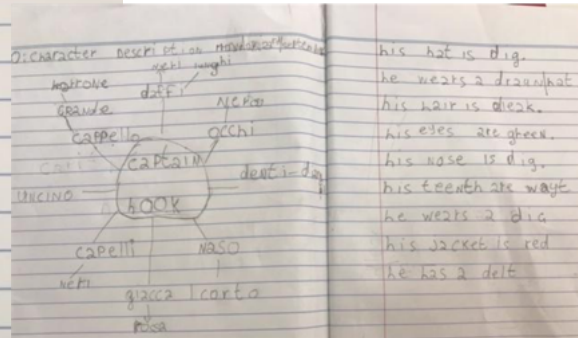 D: character Description
neri lunghi
marrone
baffi
GRANDE
Neri
cappello
occhi
captain
hook
denti-
UNCINO
capelli
naso
neri
giacca
corto
rossa
his hat is dig.
he wears a draun hat
his hair is dlezk.
his eyes are green.
his nose is dig.
his teenth are wayt
he wears a dig
his jacket is red
he has a delt